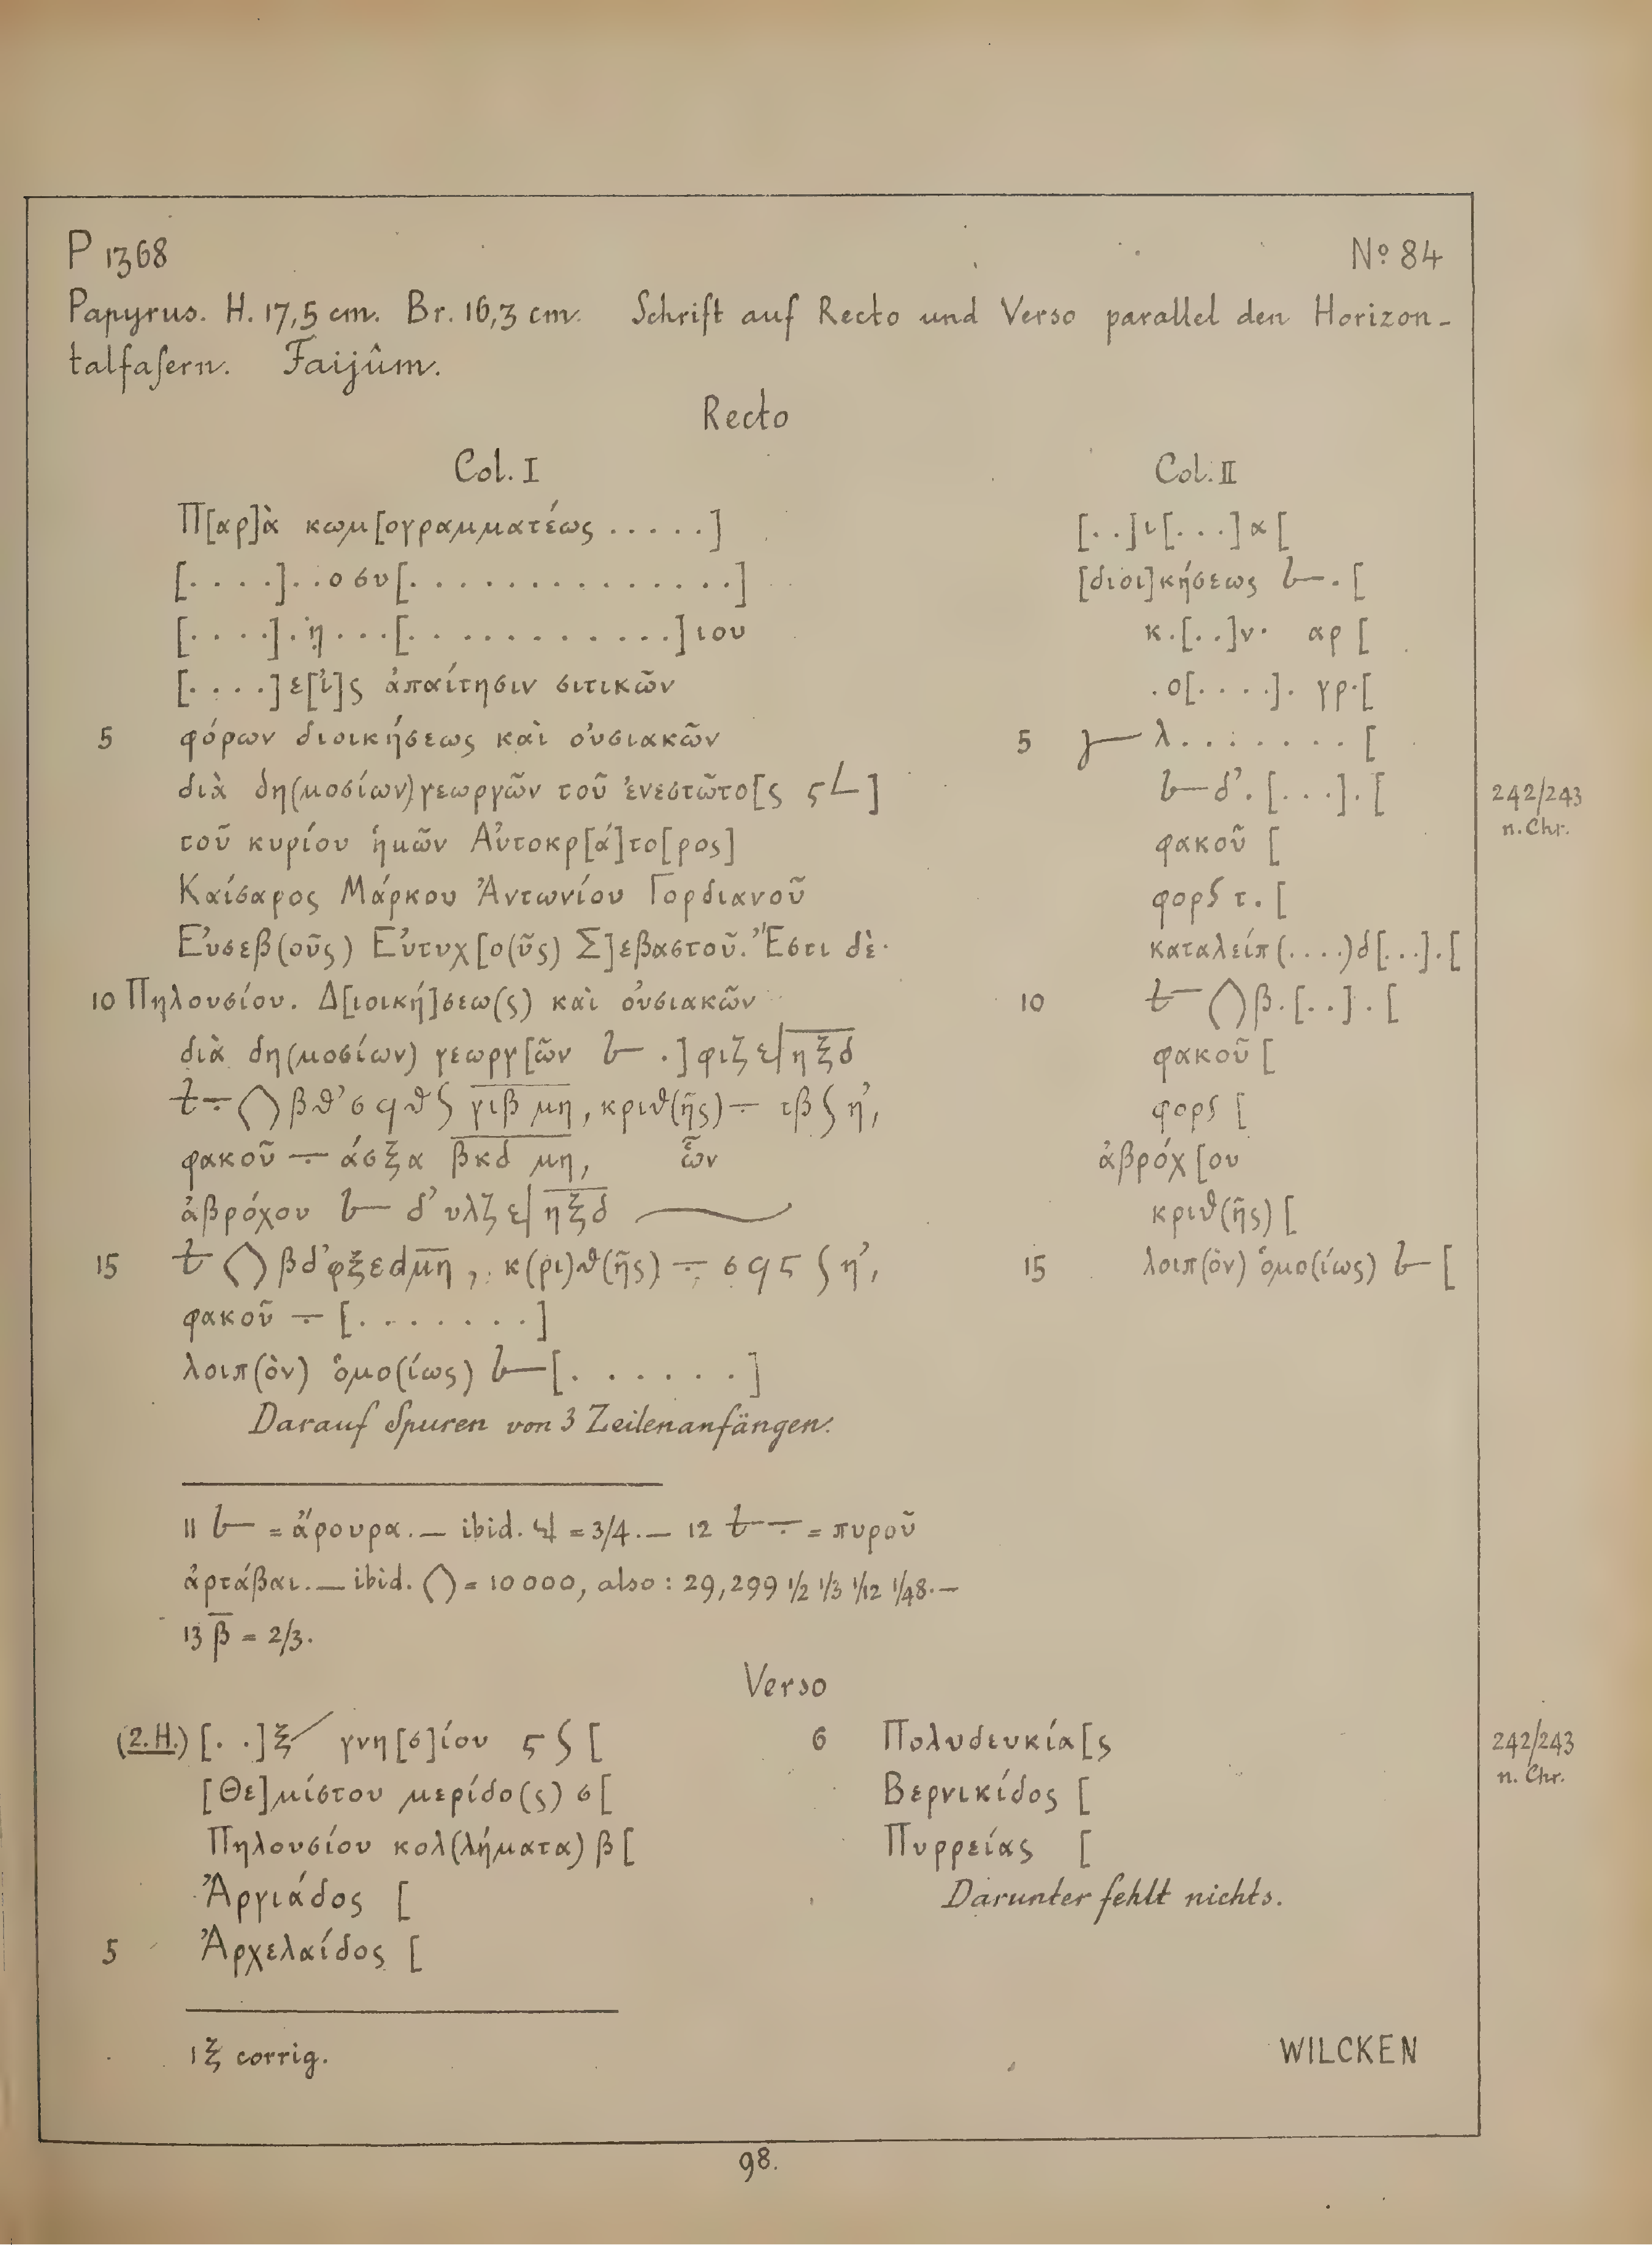 P 1368 Nº 84
Papyrus. H. 17,5 cm. Br. 16,3 cm. Schrift auf Recto und Verso parallel den Horizon-
talfasern. Faijûm.
Recto
Col. I
Π[αρ]ὰ κωμ[ογραμματέως . . . . .]
[. . . .]. . οσυ[. . . . . . . . . . . . . .]
[. . . .] . η . . . [. . . . . . . . . . .] ιου
[. . . .] ε[ἰ]ς ἀπαίτησιν σιτικῶν
5 φόρων διοικήσεως καὶ οὐσιακῶν
διὰ δη(μοσίων) γεωργῶν τοῦ ἐνεστῶτο[ς ϛ L] 242/243 n. Chr.
τοῦ κυρίου ἡμῶν Αὐτοκρ[ά]το[ρος]
Καίσαρος Μάρκου Ἀντωνίου Γορδιανοῦ
Εὐσεβ(οῦς) Εὐτυχ[ο(ῦς) Σ]εβαστοῦ. Ἔστι δὲ·
10 Πηλουσίου. Δ[ιοική]σεω(ς) καὶ οὐσιακῶν
διὰ δη(μοσίων) γεωργ[ῶν .] φιζ η ξδ
β θ’ σϙθ γιβ μη, κριθ(ῆς) τβ η’,
φακοῦ άσξα βκδ μη, ὧν
ἀβρόχου δ’ υλζ ηξδ
15 βδ’φξεdμη, κ(ρι)θ(ῆς) σϙϛ η’,
φακοῦ [. . . . . . .]
λοιπ(ὸν) ὁμο(ίως) [. . . . . .]
Darauf Spuren von 3 Zeilenanfängen.
Col. II
[. .] ι [. . .] α [
[διοι]κήσεως . [
κ . [. .] ν · αρ [
. ο[. . . .]. γρ·[
5 λ . . . . . . . [
δ’. [. . .] . [
φακοῦ [
φορ τ. [
καταλείπ(. . . .)δ[. . .] . [
10 β . [. .] . [
φακοῦ [
φορ [
ἀβρόχ[ου
κριθ(ῆς) [
15 λοιπ(ὸν) ὁμο(ίως) [
11 = ἄρουρα. — ibid. = 3/4. — 12 = πυροῦ
ἀρτάβαι. — ibid. = 10 000, also : 29,299 1/2 1/3 1/12 1/48. —
13 β̅ = 2/3.
Verso
(2. H.) [. .] ξ γνη[σ]ίου ϛ [ 242/243 n. Chr.
[Θε]μίστου μερίδο(ς) σ [
Πηλουσίου κολ(λήματα) β [
Ἀργιάδος [
5 Ἀρχελαίδος [
6 Πολυδευκία[ς
Βερνικίδος [
Πυρρείας [
Darunter fehlt nichts.
1 ξ corrig.
WILCKEN
98.